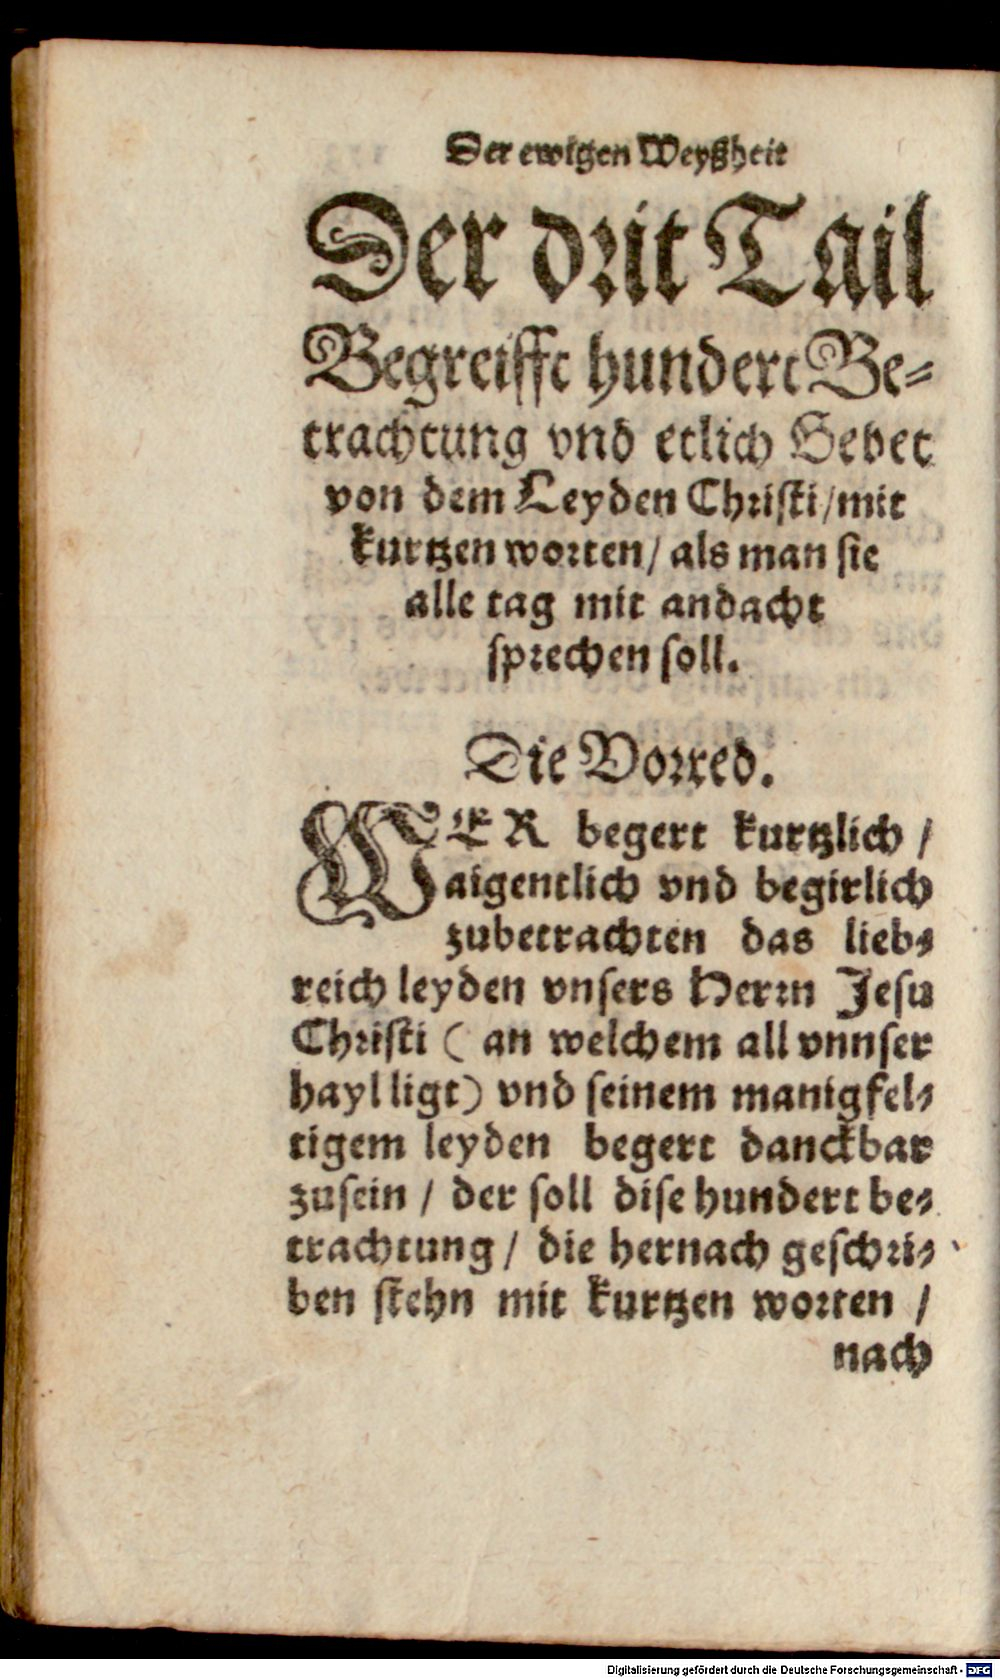 Der ewigen Weyßheit
Der drit Tail
Begreifft hundert Be⸗
trachtung vnd etlich Gebet
von dem Leyden Christi/mit
kurtzen worten/ als man sie
alle tag mit andacht
sprechen soll.
Die Vorred.
WER begert kurtzlich /
aigentlich vnd begirlich
zubetrachten das lieb⸗
reich leyden vnsers Herrn Jesu
Christi ( an welchem all vnnser
hayl ligt) vnd seinem manigfel⸗
tigem leyden begert danckbar
zusein / der soll dise hundert be⸗
trachtung/ die hernach geschri⸗
ben stehn mit kurtzen worten /
nach
Digitalisierung gefördert durch die Deutsche Forschungsgemeinschaft - DFG